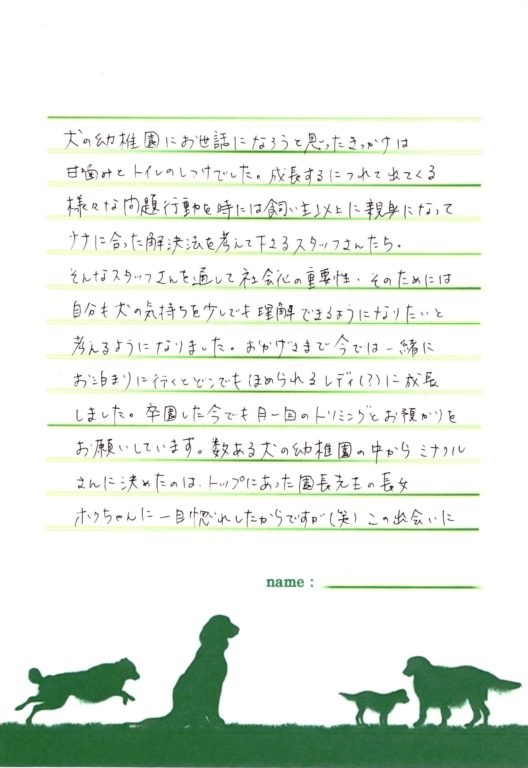 犬の幼稚園にお世話になろうと思ったきっかけは
甘噛みとトイレのしつけでした。成長するにつれて出てくる
様々な問題行動を時には飼い主以上に親身になって
ナナに合った解決法を考えて下さるスタッフさんたち。
そんなスタッフさんを通して社会化の重要性・そのためには
自分も犬の気持ちを少しでも理解できるようになりたいと
考えるようになりました。おかげさまで今では一緒に
お泊まりに行くとどこでもほめられるレディ(?)に成長
しました。卒園した今でも月一回のトリミングとお預かりを
お願いしています。数ある犬の幼稚園の中からミラクル
さんに決めたのは、トップにあった園長先生の長女
ホクちゃんに一目惚れしたからですが(笑)この出会いに
name :